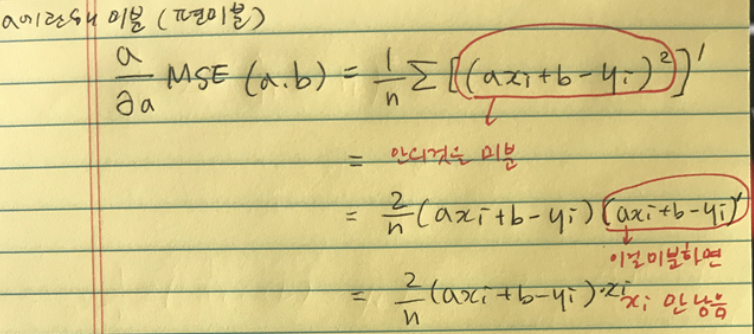 a에 관해 미분 (편미분)
a/∂a MSE (a.b) = 1/n Σ [(axi+b-yi)²]'
= 안의것을 미분
= 2/n (axi+b-yi) (axi+b-yi)'
이걸미분하면
= 2/n (axi+b-yi)·xi xi 만남음